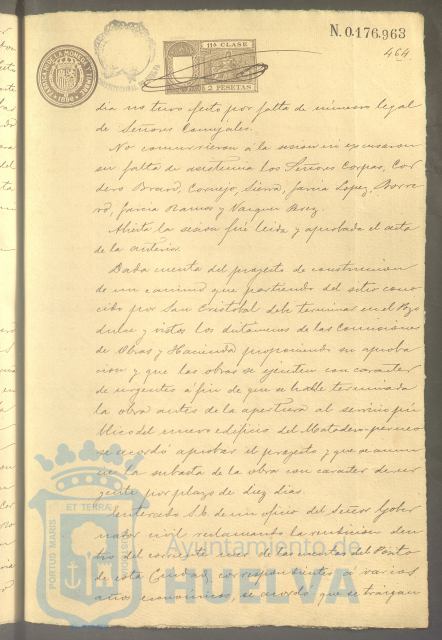 N. 0.176.963
464
11ª CLASE
2 PESETAS
1896
dia no tuvo efecto por falta de número legal
de Señores Concejales.
No concurrieron á la sesion ni excusaron
su falta de asistencia los Señores Corpas, Cor
dero Bravo, Cornejo, Sierra, Garcia Lopez,
Garcia Ramos y Vazquez Perez.
Abierta la sesion fué leida y aprobada el acta
de la anterior.
Dada cuenta del proyecto de construccion
de un camino que partiendo del sitio cono
cido por San Cristobal debe terminar en el Pozo
dulce y vistos los dictamenes de las Comisiones
de Obras y Hacienda proponiendo su aproba
cion y que las obras se ejecuten con caracter
de urgentes á fin de que se halle terminada
la obra antes de la apertura al servicio pú
blico del nuevo edificio del Matadero público
se acordó aprobar el proyecto y que se anun
cie la subasta de la obra con caracter de ur
gente por plazo de diez dias.
Enterado S.E. de un oficio del Señor Gober
nador civil reclamando la rendicion den
tro del corriente mes de las cuentas del Pósito
de esta Ciudad, correspondientes á varios
años económicos, se acordó que se traigan
PORTUS MARIS ET TERRAE CUSTODIA
Ayuntamiento de
HUELVA